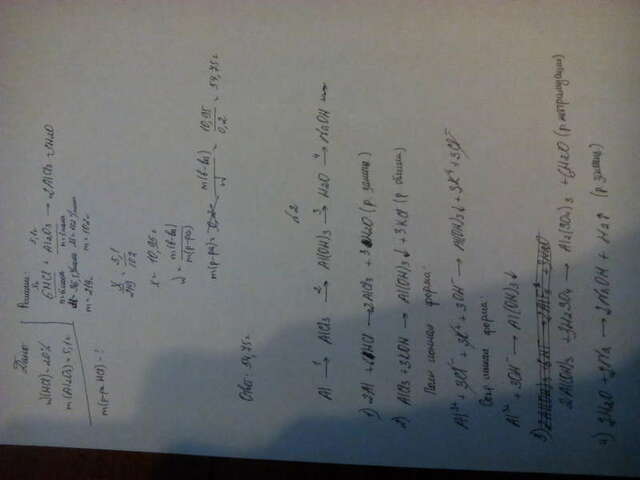 Дано:
w(HCl)=20%
m(Al2O3)=5,1г
m(р-ра HCl)=?
Решение:
x 5,1г
6HCl + Al2O3 → 2AlCl3 + 3H2O
n=6моль n=1моль
M=36,5г/моль M=102г/моль
m=219г m=102г
x/219 = 5,1/102
x = 10,95г
w = m(в-ва)/m(р-ра)
m(р-ра) = m(в-ва)/w = 10,95/0,2 = 54,75г
Ответ: 54,75г.
№2
Al →1 AlCl3 →2 Al(OH)3 →3 H2O →4 NaOH
1) 2Al + 6HCl → 2AlCl3 + 3H2O (р. замещ.)
2) AlCl3 + 3KOH → Al(OH)3↓ + 3KCl (р. обмен)
Полн. ионная форма:
Al3+ + 3Cl- + 3K+ + 3OH- → Al(OH)3↓ + 3K+ + 3Cl-
Сокр. ионная форма:
Al3+ + 3OH- → Al(OH)3↓
3)
2Al(OH)3 + 3H2SO4 → Al2(SO4)3 + 6H2O (р. нейтрализации)
4) 2H2O + 2Na → 2NaOH + H2↑ (р. замещ.)